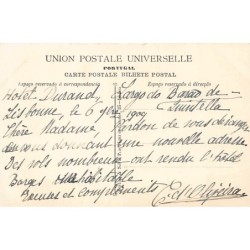 UNION POSTALE UNIVERSELLE
PORTUGAL
CARTE POSTALE BILHETE POSTAL
Espaço reservado á correspondencia
Espaço reservado á direcção
Hotel Durand, Largo do Barão de Quintella
Lisbonne, le 6 9bre 1909
Chère Madame, Pardon de vous déranger
en vous donnant une nouvelle adresse.
Des vols nombreux ont rendu l'hôtel
Borges inhabitable.
Excuses et compliments